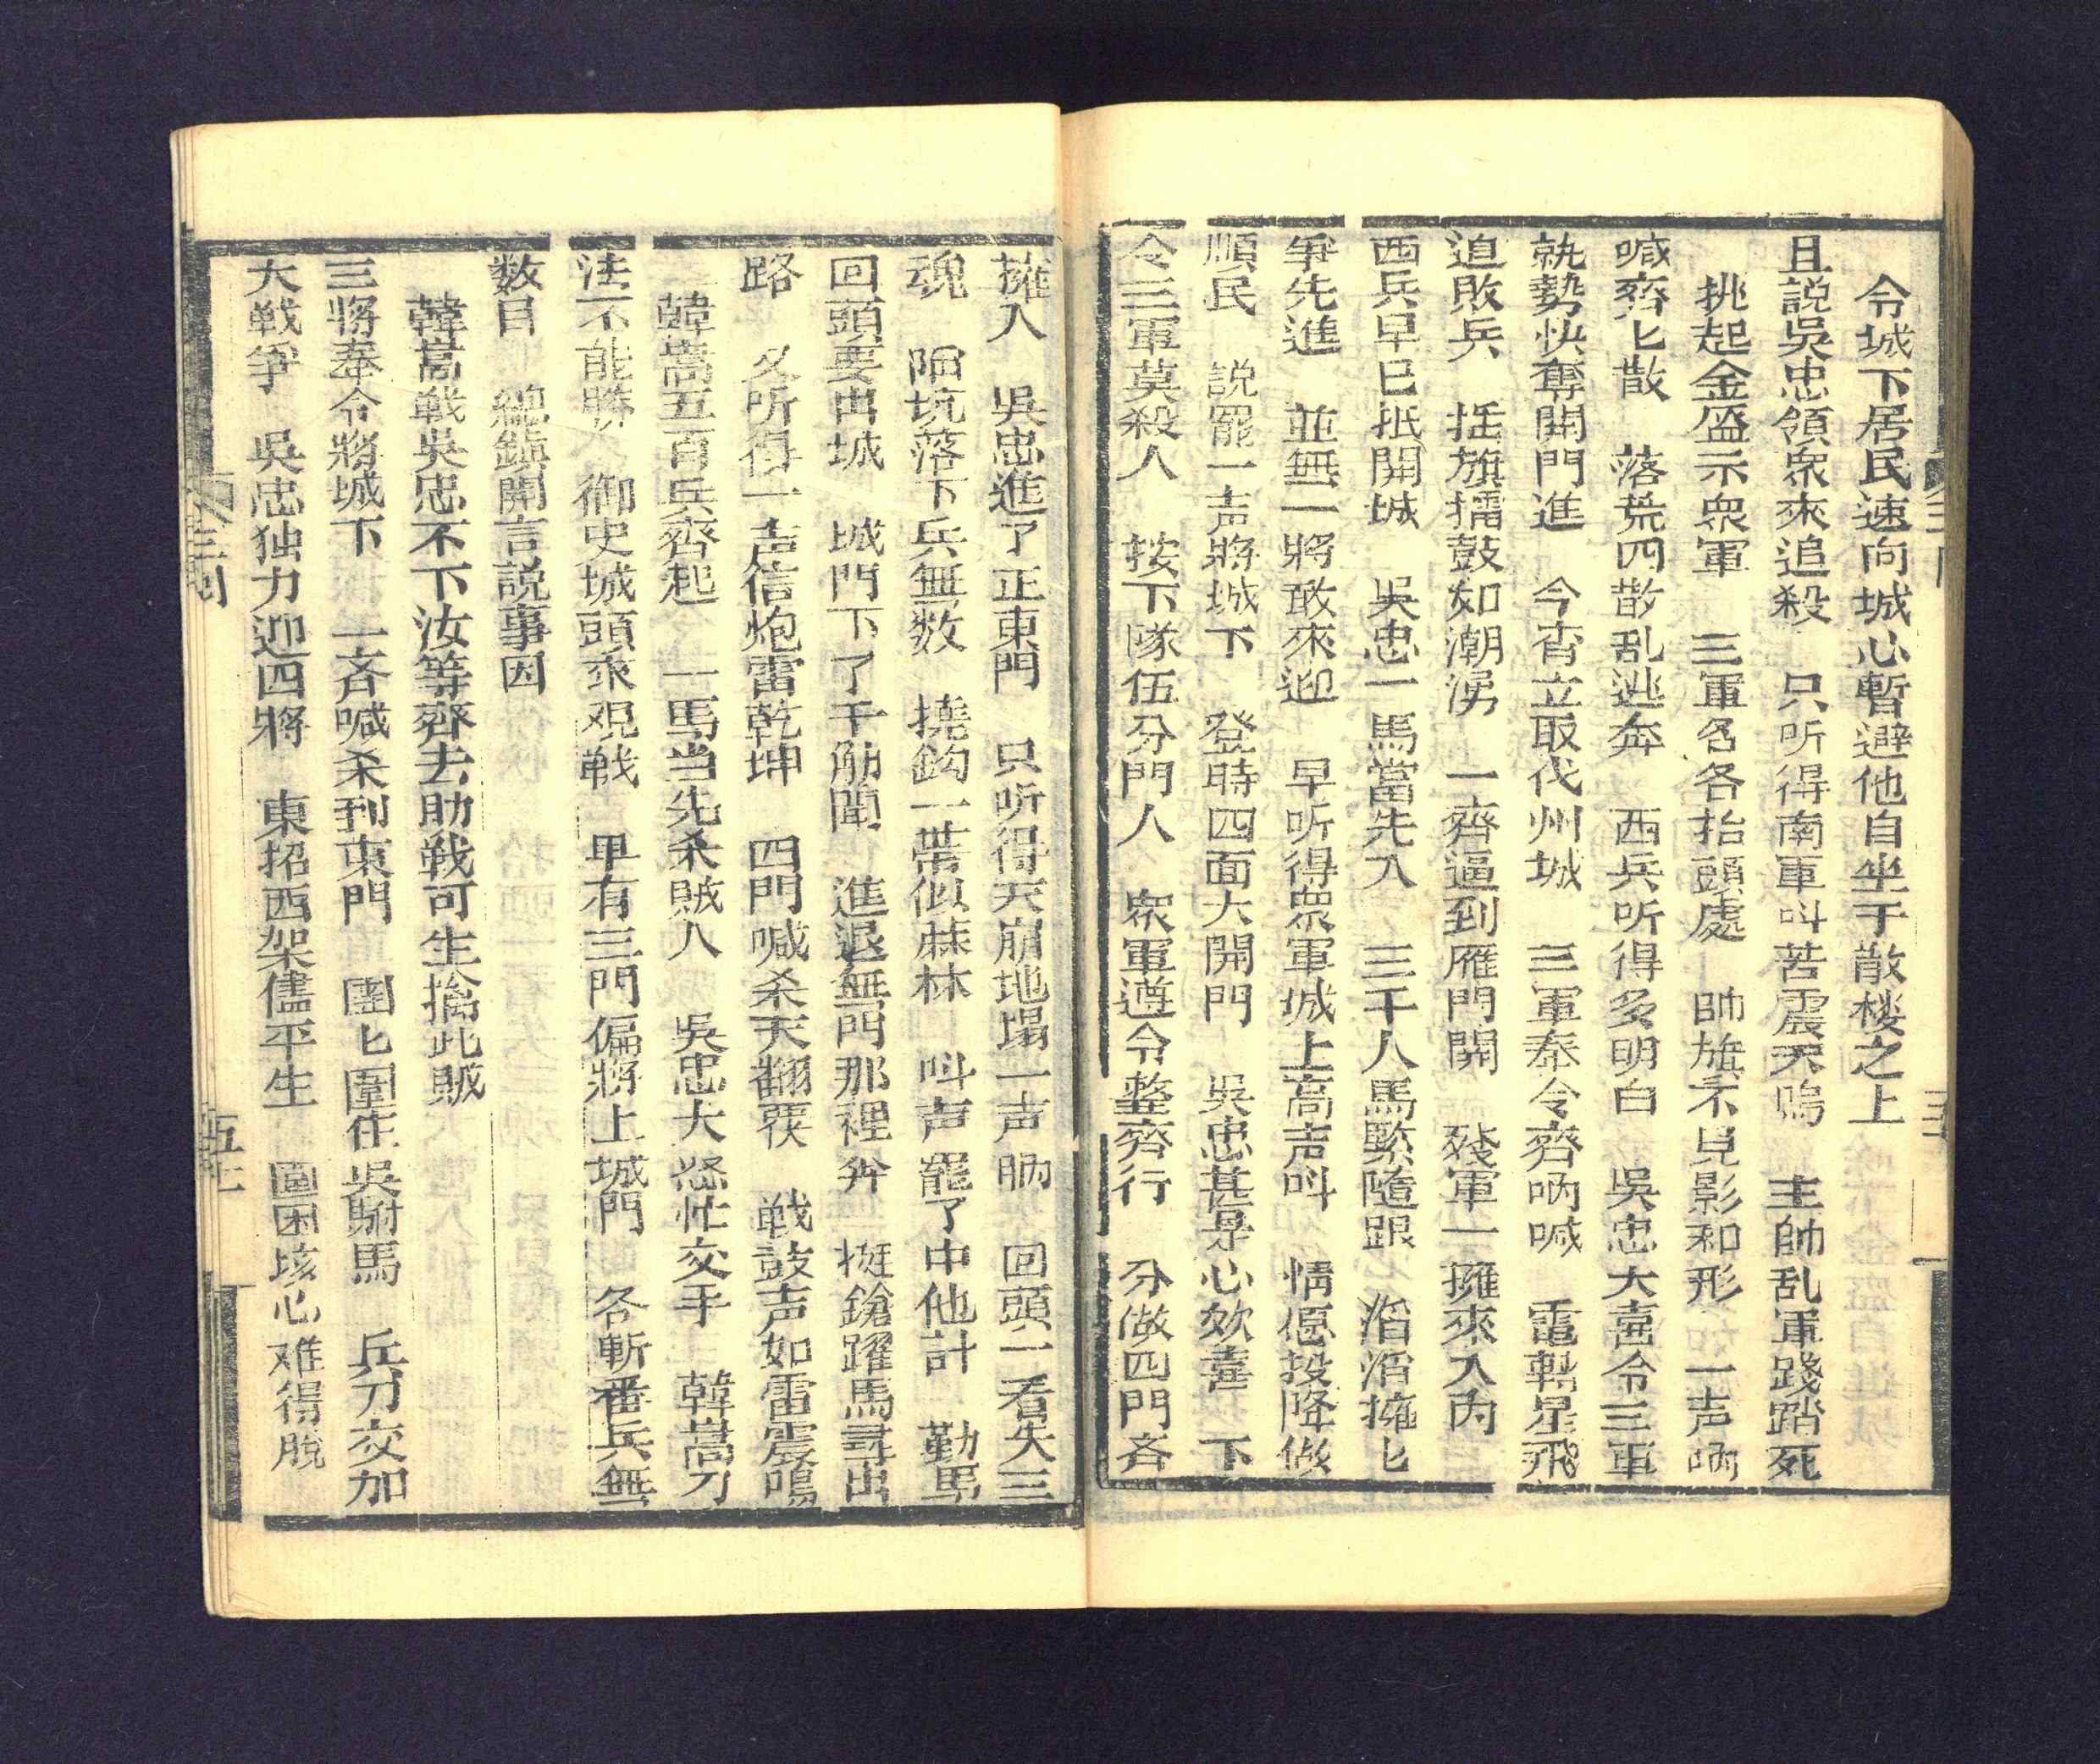 令城下居民速向城心暫避他自坐于散楼之上
且説吳忠領衆來追殺　只听得南軍叫苦震天鳴　主帥乱軍踐踏死
挑起金盔示衆軍　三軍各各抬頭處　帥旗不見影和形　一声吶
喊齊匕散　落荒四散乱逃奔　西兵听得多明白　吳忠大喜令三軍
執勢快奪開門進　今宵立取代州城　三軍奉令齊吶喊　電轉星飛
追敗兵　括旗擂鼓如潮湧　一齊逼到雁門関　殘軍一擁來入內
西兵早已抵開城　吳忠一馬當先入　三千人馬緊隨跟　滔滔擁匕
爭先進　並無一將敢來迎　早听得衆軍城上高声叫　情愿投降做
順民　説罷一声將城下　登時四面大開門　吳忠甚是心欢喜　下
令三軍莫殺人　按下隊伍分門人　衆軍遵令整齊行　分做四門斉
擁入　吳忠進了正東門　只听得天崩地塌一声响　回頭一看失三
魂　陷坑落下兵無数　撓鈎一带似蔴林　叫声罷了中他計　勤馬
回頭要出城　城門下了千觔閘　進退無門那裡奔　挺鎗躍馬尋出
路　又听得一声信炮雷乾坤　四門喊杀天翻覆　戦鼓声如雷震鳴
韓嵩五百兵齊起　一馬当先杀賊人　吳忠大怒忙交手　韓嵩刀
法不能勝　御史城頭來观戦　早有三門偏將上城門　各斬番兵無
数目　總鎮開言説事因
韓嵩戦吳忠不下汝等齊去助戦可生擒此賊
三將奉令將城下　一斉喊杀到東門　團匕圍住吳駙馬　兵刀交加
大戦爭　吳忠独力迎四將　東招西架儘平生　圍困垓心难得脫